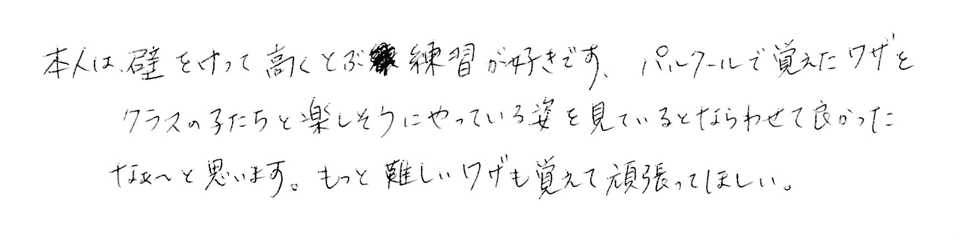 本人は、壁をけって高くとぶ練習が好きです、パルクールで覚えたワザを
クラスの子たちと楽しそうにやっている姿を見ているとならわせて良かった
なぁ〜と思います。もっと難しいワザも覚えて頑張ってほしい。